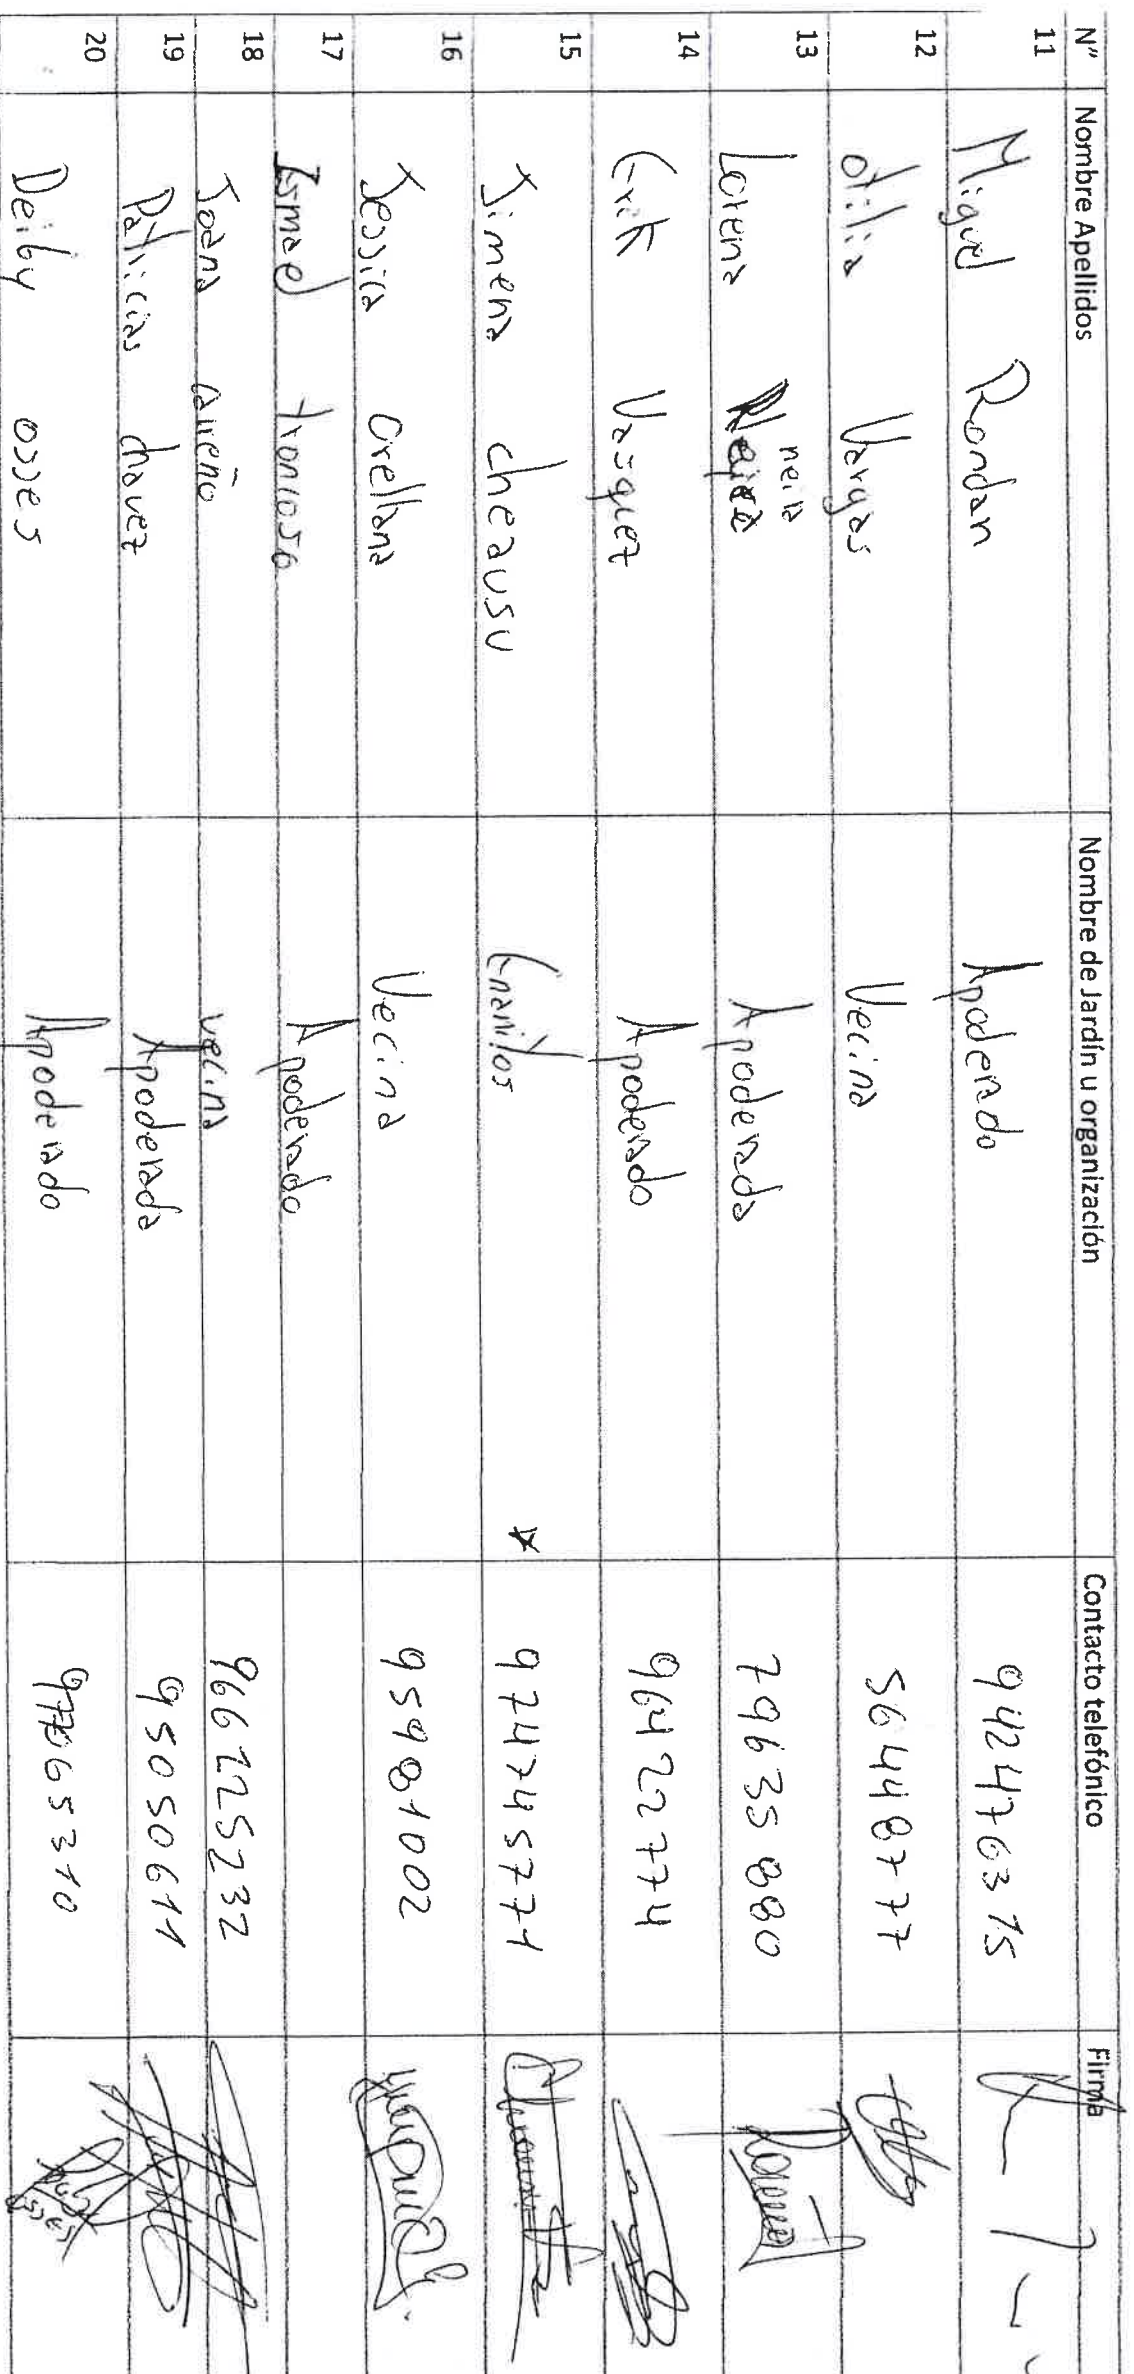 N° Nombre Apellidos Nombre de Jardín u organización Contacto telefónico Firma
11 Miguel Rondan Apoderado 942476315
12 otilia Vargas Vecina 56448777
13 Lorena neira Apoderada 79635880
14 Erik Vasquez Apoderado 96422774
15 Jimena cheausu Enanitos * 974745771
16 Jessica Orellana Vecina 95981002
17 Ismael troncoso Apoderado
18 Joana carreño vecina 966225232
19 Patricias chavez Apoderada 95050611
20 Deiby osses Apoderado 65310